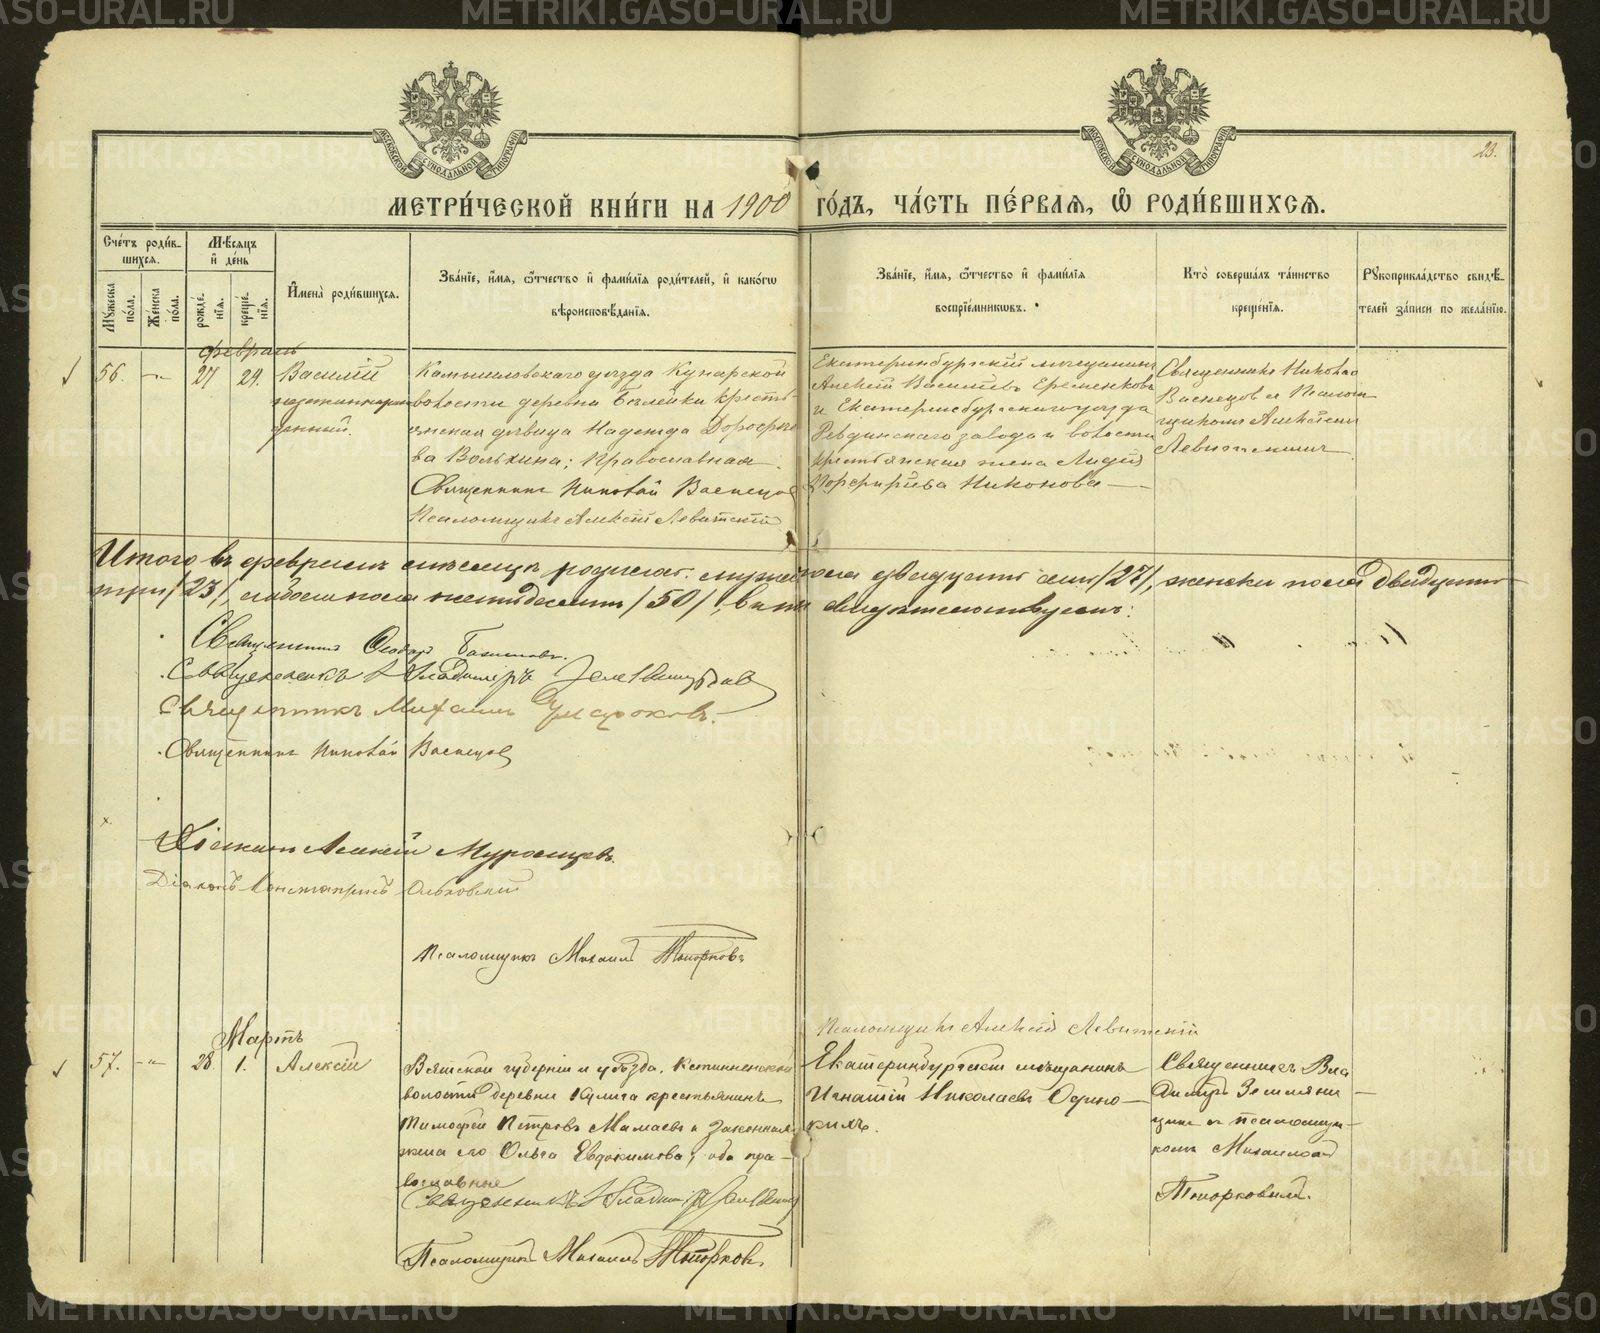 METRIKI.GASO-URAL.RU
МОСКОВСКОЙ СѴНОДАЛЬНОЙ ТИПОГРАФІИ
МОСКОВСКОЙ СѴНОДАЛЬНОЙ ТИПОГРАФІИ
23.
МЕТРИ́ЧЕСКОЙ КНИ́ГИ НА 1900 ГО́ДЪ, ЧА́СТЬ ПЕ́РВАЯ, Ѽ РОДИ́ВШИХСЯ.
Сче́тъ роди́в-
шихся.
Мꙋжеска по́ла.
Же́нска по́ла.
Мѣ́сяцъ
и҆ де́нь
рожде́нїя.
креще́нїя.
И҆мена̀ роди́вшихся.
Зва́нїе, и҆́мя, ѻ҆́тчество и҆ фами́лїя роди́телей, и҆ како́гѡ
вѣроисповѣ́данїя.
Зва́нїе, и҆́мя, ѻ҆́тчество и҆ фами́лїя
воспрїе́мникѡвъ.
Кто̀ соверша́лъ та́инство
креще́нїя.
Рꙋкоприкла́дство свидѣ́-
телей за́писи по жела́нїю.
февраль
56. -"- 27 29. Василій
незаконнорож
денный.
Камышловскаго уезда Кунарской
волости деревни Бѣлейки кресть-
янская дѣвица Надежда Дорофее
ва Вольхина; Православная.
Священникъ Николай Васнецов
Псаломщикъ Алексій Левитскій
Екатеринбургскій мещанинъ
Алексій Василіевъ Еременковъ
и Екатеринбургскаго уезда
Ревдинскаго завода и волости
крестьянская жена Лидія
Порфиріева Никонова
Священникъ Николай
Васнецов и Псалом
щикъ Алексій
Левитскій
Итого въ феврале месяце родилось мужеска пола двадцать семь /27/, женска пола двадцать
три /23/, обоего пола пятьдесятъ /50/, в чем свидетельствуемъ:
Священникъ Ѳеодоръ
Священникъ Владиміръ Земляницынъ
Священникъ Михаилъ
Священникъ Николай Васнецов
Діаконъ Алексій Муромцевъ.
Діаконъ Константинъ
Псаломщикъ Михаилъ Топорковъ
Псаломщикъ Алексій Левитскій
Мартъ
57. -"- 28. 1. Алексій
Вятской губерніи и уѣзда,
волости деревни Кулига крестьянинъ
Тимофей Петровъ Мамаевъ и законная
жена его Ольга Евдокимова; оба пра-
вославные
Священникъ Владиміръ
Псаломщикъ Михаилъ Топорковъ.
Екатеринбургскій мещанинъ
Игнатій Николаевъ Одино-
кихъ.
Священникъ Вла
диміръЗемляни
цынъ и псаломщи-
комъ Михаиломъ
Топорковымъ.